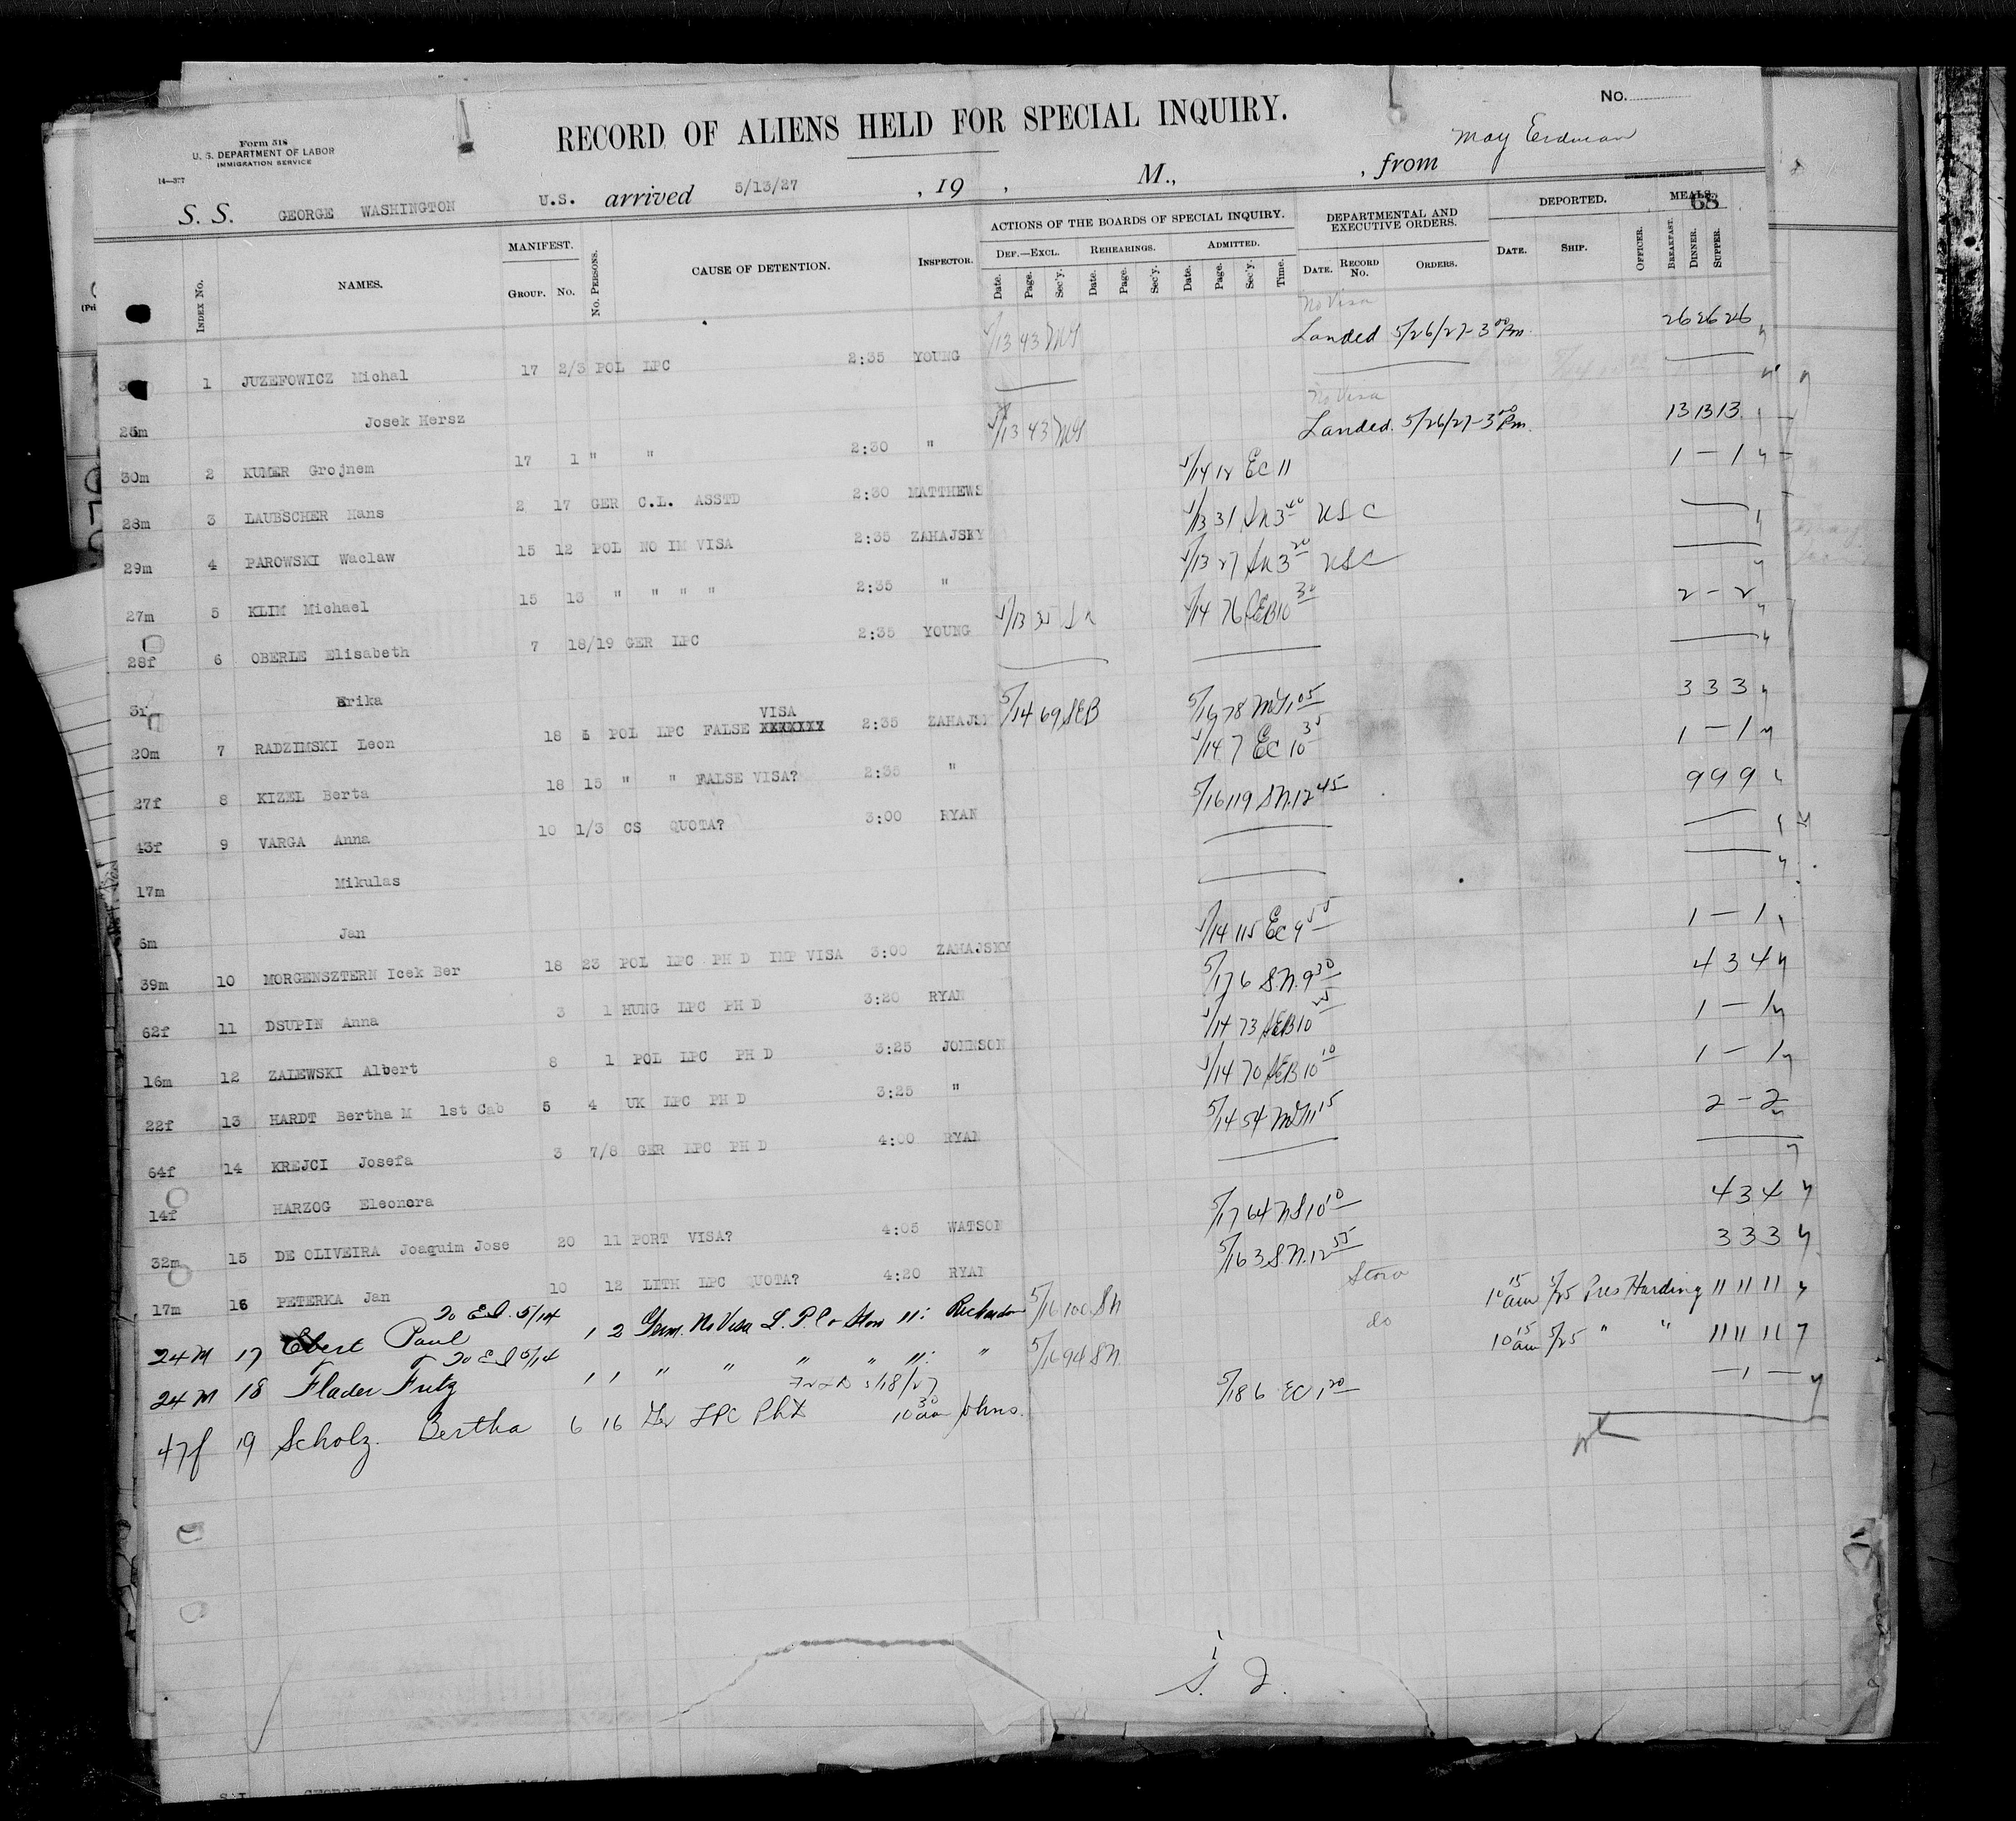 Form 518
U. S. DEPARTMENT OF LABOR
IMMIGRATION SERVICE
14—377
No.
RECORD OF ALIENS HELD FOR SPECIAL INQUIRY.
May Erdman
S. S. GEORGE WASHINGTON U.S. arrived 5/13/27 , 19 , M., , from
68
INDEX No. NAMES. MANIFEST. GROUP. No. No. PERSONS. CAUSE OF DETENTION. INSPECTOR. ACTIONS OF THE BOARDS OF SPECIAL INQUIRY. DEF.—EXCL. Date. Page. Sec'y. REHEARINGS. Date. Page. Sec'y. ADMITTED. Date. Page. Sec'y. Time. DEPARTMENTAL AND EXECUTIVE ORDERS. DATE. RECORD No. ORDERS. DEPORTED. DATE. SHIP. OFFICER. MEALS. BREAKFAST. DINNER. SUPPER.
No Visa
1 JUZEFOWICZ Michal 17 2/3 POL LPC 2:35 YOUNG 5/13 43 Landed 5/26/27-3 00 Pm. 26 26 26
Josek Hersz
No Visa
30m 2 KUMER Grojnem 17 1 " " 2:30 " 5/13 43 Landed. 5/26/27-3 00 Pm. 13 13 13
28m 3 LAUBSCHER Hans 2 17 GER C.L. ASSTD 2:30 MATTHEWS 5/14 12 EC 11 1 – 1
29m 4 PAROWSKI Waclaw 15 12 POL NO IM VISA 2:35 ZAHAJSKY 5/13 31 SN 3 40 USC
27m 5 KLIM Michael 15 13 " " " " 2:35 " 5/13 27 SN 3 20 USC
28f 6 OBERLE Elisabeth 7 18/19 GER LPC 2:35 YOUNG 5/13 35 SN 5/14 76 SEB 10 30 2 – 2
3f Erika
20m 7 RADZIMSKI Leon 18 5 POL LPC FALSE XXXXXXX VISA 2:35 ZAHAJS 5/14 69 SEB 5/16 78 1 05 3 3 3
27f 8 KIZEL Berta 18 15 " " FALSE VISA? 2:35 " 5/14 7 EC 10 35 1 – 1
43f 9 VARGA Anna 10 1/3 CS QUOTA? 3:00 RYAN 5/16 119 S.N. 12 45 9 9 9
17m Mikulas
6m Jan
39m 10 MORGENSZTERN Icek Ber 18 23 POL LPC PH D IMP VISA 3:00 ZAHAJSKY 5/14 115 EC 9 55 1 – 1
62f 11 DSUPIN Anna 3 1 HUNG LPC PH D 3:20 RYAN 5/17 6 S.N. 9 30 4 3 4
16m 12 ZALEWSKI Albert 8 1 POL LPC PH D 3:25 JOHNSON 5/14 73 SEB 10 1 – 1
22f 13 HARDT Bertha M 1st Cab 5 4 UK LPC PH D 3:25 " 5/14 70 SEB 10 10 1 – 1
64f 14 KREJCI Josefa 3 7/8 GER LPC PH D 4:00 RYAN 5/14 54 11 15 2 – 2
14f HARZOG Eleonora
32m 15 DE OLIVEIRA Joaquim Jose 20 11 PORT VISA? 4:05 WATSON 5/17 64 10 10 4 3 4
17m 16 PETERKA Jan 10 12 LITH LPC QUOTA? 4:20 RYAN 5/16 3 S.N. 12 55 3 3 3
To E.I. 5/14
24 M 17 Ebert Paul 1 2 Germ. No Visa L.P.C. Stow 11: Richardson 5/16 100 SN Stow 10 15 am 5/25 Pres Harding 11 11 11
To E I 5/14
24 M 18 Flader Fritz 1 1 " " " " 11: " 5/16 94 SN. do 10 15 am 5/25 " " 11 11 11
5/18/27
47f 19 Scholz. Bertha 6 16 Ger LPC PhD 10 30 am Johns. 5/18 6 EC 1 20 – 1 –
S. I.
S.I GEORGE WASHINGTON